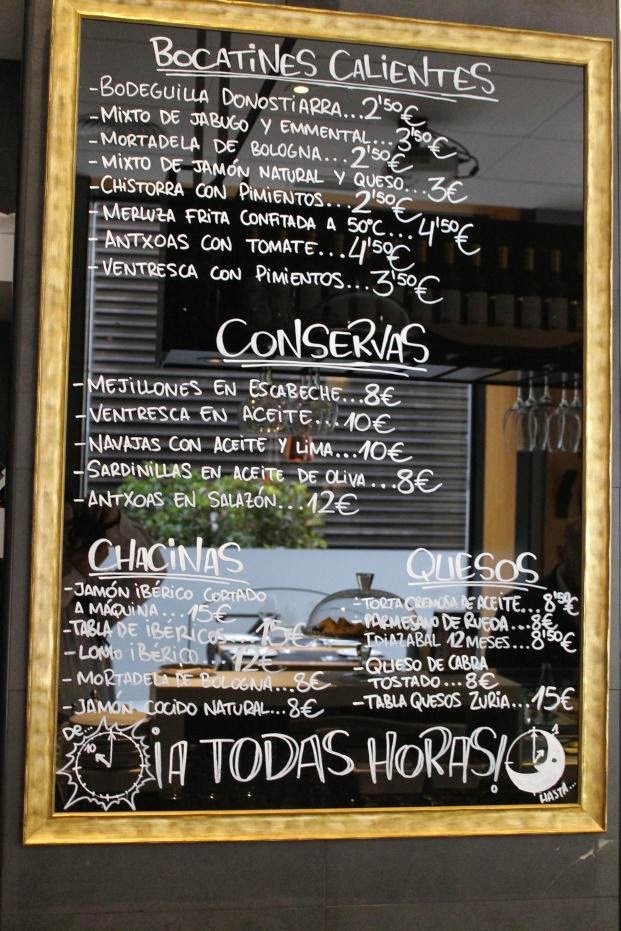 BOCATINES CALIENTES
-BODEGUILLA DONOSTIARRA...2'50€
-MIXTO DE JABUGO Y EMMENTAL...3'50€
-MORTADELA DE BOLOGNA...2'50€
-MIXTO DE JAMÓN NATURAL Y QUESO...3€
-CHISTORRA CON PIMIENTOS...2'50€
-MERLUZA FRITA CONFITADA A 50ºC...4'50€
-ANTXOAS CON TOMATE...4'50€
-VENTRESCA CON PIMIENTOS...3'50€
CONSERVAS
-MEJILLONES EN ESCABECHE...8€
-VENTRESCA EN ACEITE...10€
-NAVAJAS CON ACEITE Y LIMA...10€
-SARDINILLAS EN ACEITE DE OLIVA...8€
-ANTXOAS EN SALAZÓN...12€
CHACINAS
-JAMÓN IBÉRICO CORTADO
A MÁQUINA...15€
-TABLA DE IBÉRICOS...15€
-LOMO IBÉRICO...12€
-MORTADELA DE BOLOGNA...8€
-JAMÓN COCIDO NATURAL...8€
QUESOS
-TORTA CREMOSA DE ACEITE...8'50€
-PARMESANO DE RUEDA...8€
IDIAZABAL 12 MESES...8'50€
-QUESO DE CABRA
TOSTADO...8€
-TABLA QUESOS ZURIA...15€
DE...
10
¡A TODAS HORAS!
1
HASTA...